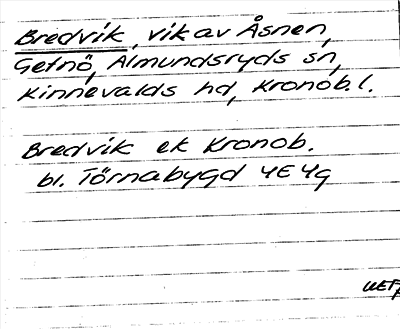 Bredvik, vik av Åsnen,
Getnö, Almundsryds sn,
Kinnevalds hd, Kronob. l.
Bredvik ek Kronob.
bl. Törnabygd 4E4g